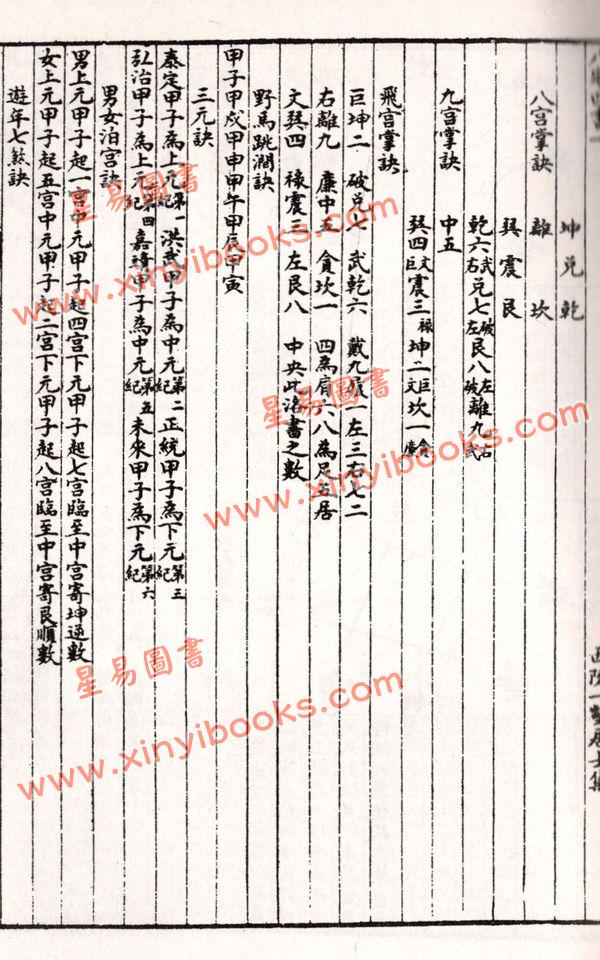 坤兌乾
八宮掌訣 離 坎
巽震艮
乾六武右兌七破左艮八左破離九右武
九宮掌訣 中五
巽四文巨震三祿坤二巨文坎一貪廉
飛宮掌訣
巨坤二 破兌七 武乾六 戴九履一左三右七二
右離九 廉中五 貪坎一 四為肩六八為足五居
文巽四 祿震三 左艮八 中央此洛書之數
野馬跳澗訣
甲子甲戍甲申甲午甲辰甲寅
三元訣
泰定甲子為上元第一紀洪武甲子為中元第二紀正統甲子為下元第三紀
弘治甲子為上元第四紀嘉靖甲子為中元第五紀未來甲子為下元第六紀
男女泊宮訣
男上元甲子起一宮中元甲子起四宮下元甲子起七宮臨至中宮寄坤逆數
女上元甲子起五宮中元甲子起二宮下元甲子起八宮臨至中宮寄艮順數
遊年七煞訣
星易圖書
www.xinyibooks.com
星易圖書
www.xinyibooks.com
星易圖書
www.xinyibooks.com